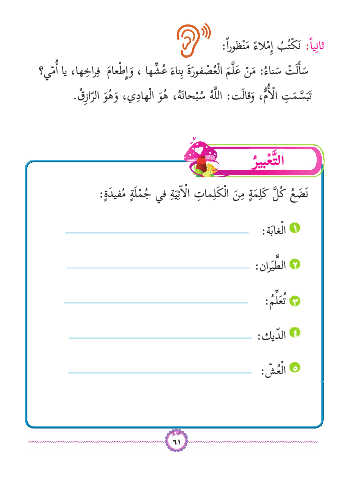 ثانِياً: نَكْتُبُ إِمْلاءً مَنْظوراً:
سَأَلَتْ سَناءُ: مَنْ عَلَّمَ الْعُصْفورَةَ بِناءَ عُشِّها ، وَإِطْعامَ فِراخِها، يا أُمّي؟
تَبَسَّمَتِ الْأُمُّ، وَقالَت: اللَّهُ سُبْحانَهُ، هُوَ الْهادِي، وَهُوَ الرَّازِقُ.
التَّعْبيرُ
نَضَعُ كُلَّ كَلِمَةٍ مِنَ الْكَلِماتِ الْآتِيَةِ في جُمْلَةٍ مُفيدَةٍ:
١ الْغابَة:
٢ الطَّيَران:
٣ تُعَلِّمُ:
٤ الدّيك:
٥ الْعُشّ:
٦١